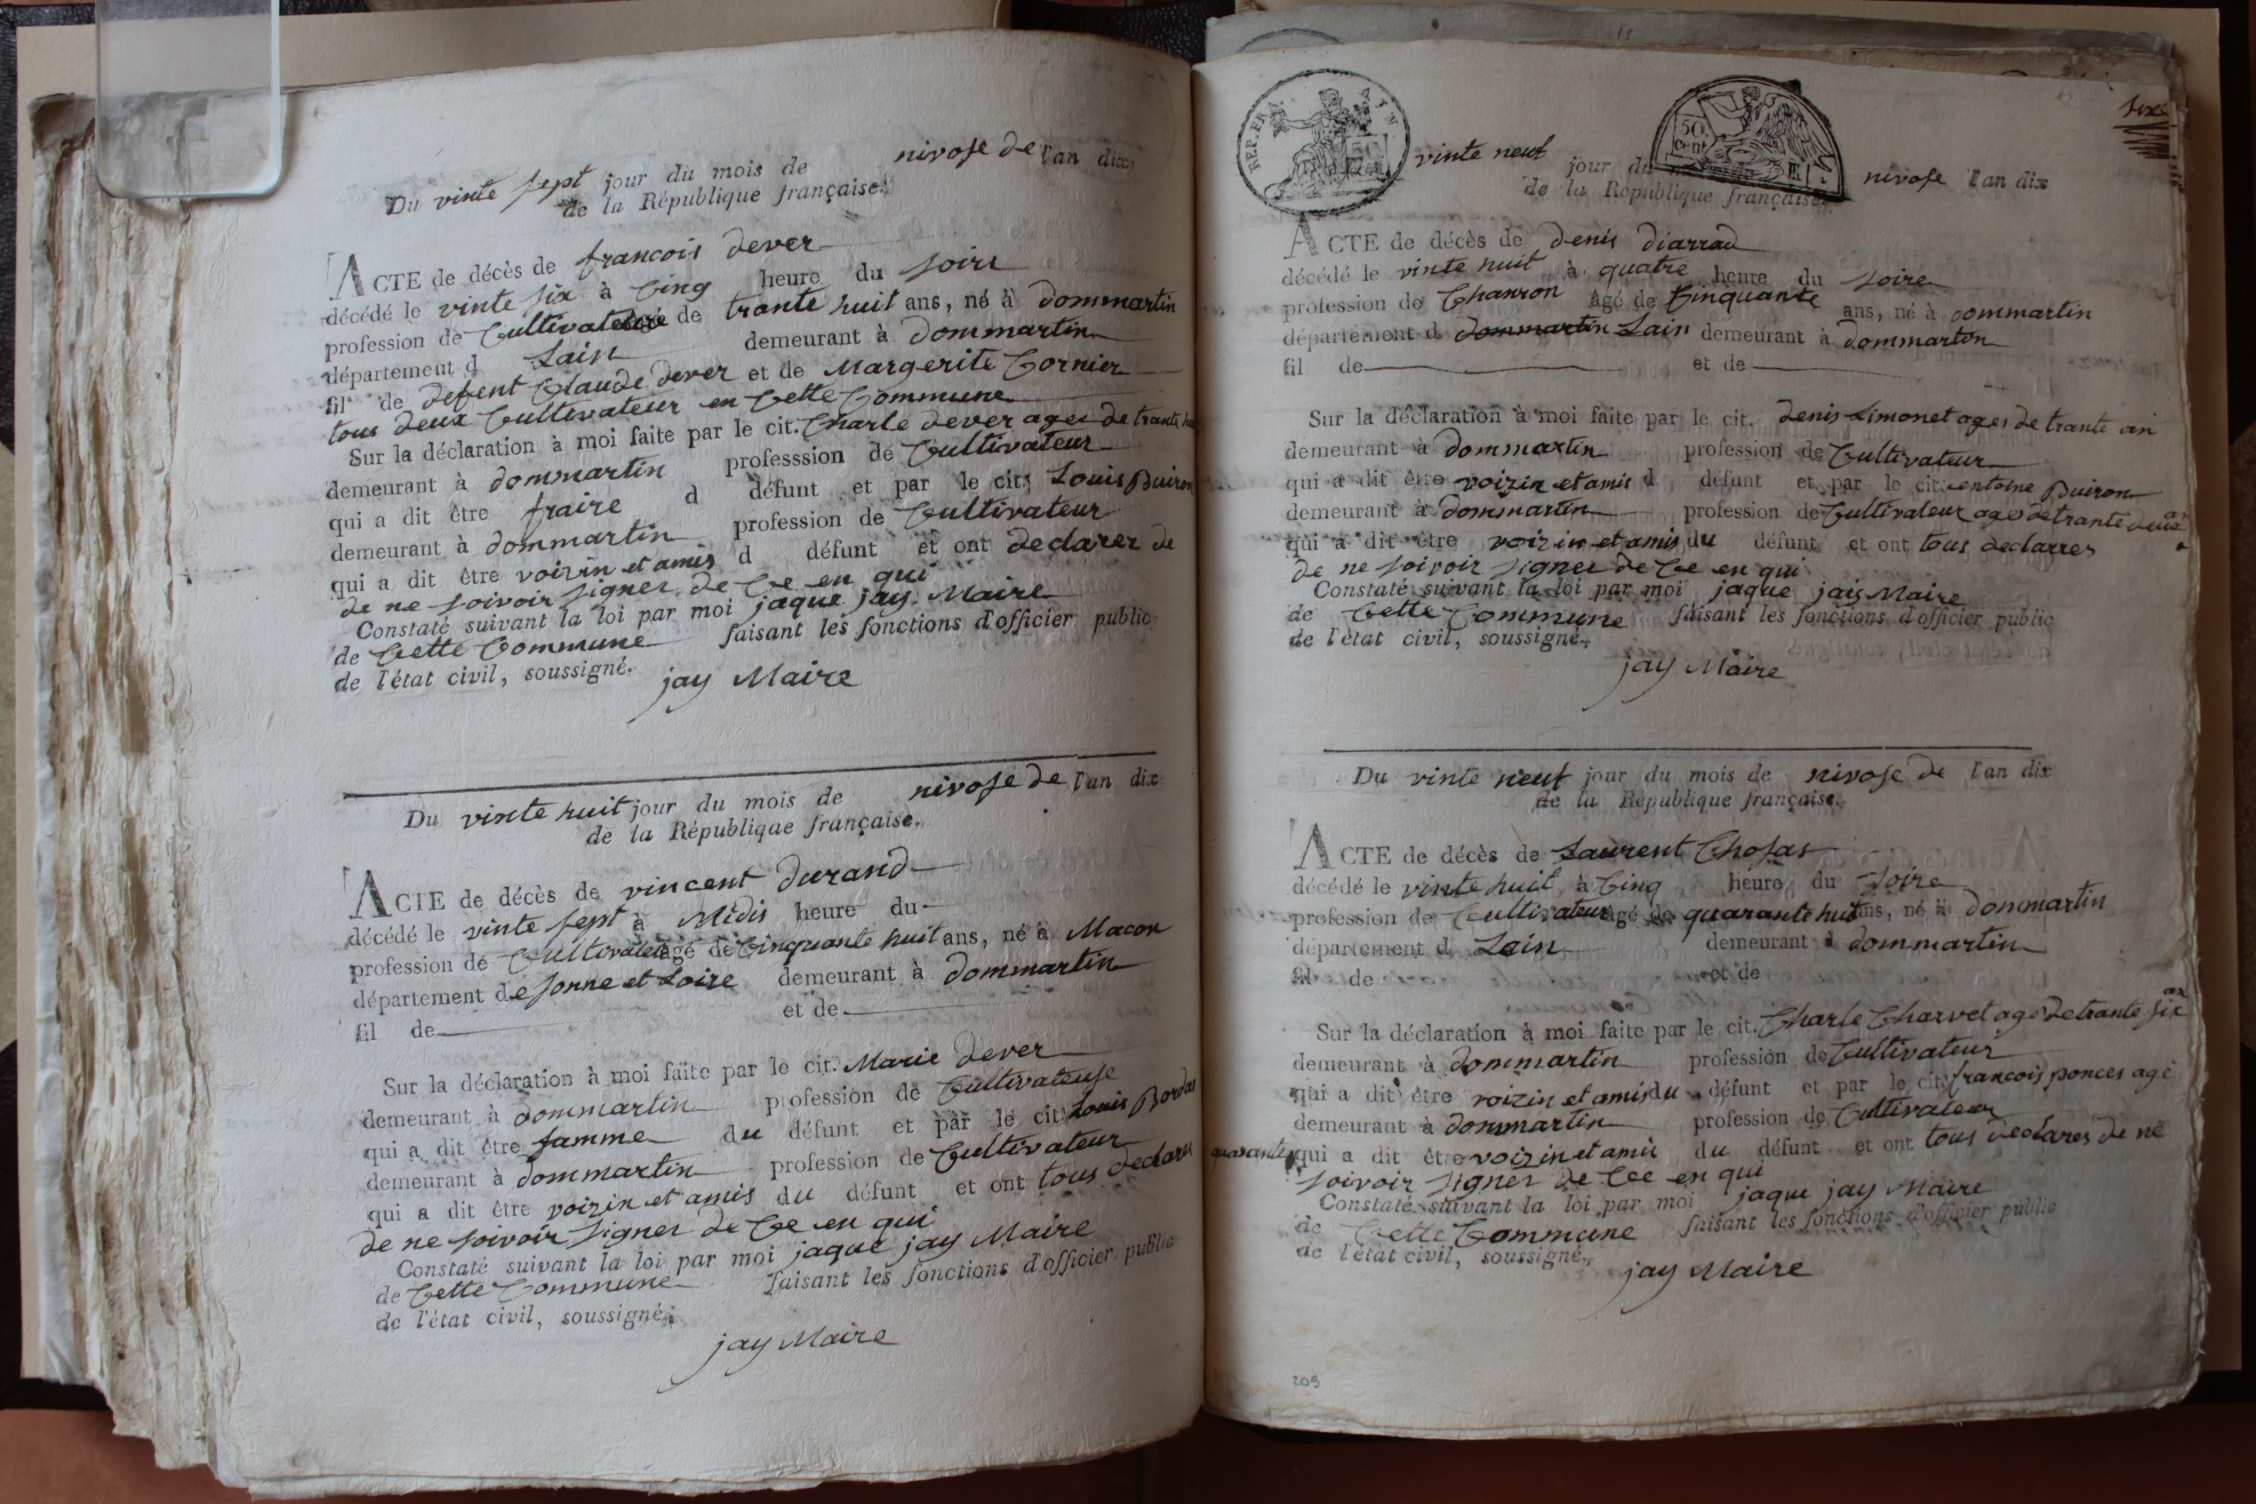 Du vinte sept jour du mois de nivose de l'an dix
de la République française.
ACTE de décès de francois dever
décédé le vinte six à cinq heure du soire
profession de cultivateur âgé de trante huit ans, né à dommartin
département d Lain demeurant à dommartin
fil de defent claude dever et de Margerite Cornier
tous deux cultivateur en cette commune
Sur la déclaration à moi faite par le cit. Charle dever ages de trante
demeurant à dommartin professsion de cultivateur
qui a dit être fraire d défunt et par le cit. Louis Buiron
demeurant à dommartin profession de cultivateur
qui a dit être voizin et amis d défunt et ont declarer de
de ne soivoir signer de ce en qui
Constaté suivant la loi par moi jaque jay Maire
de cette commune faisant les fonctions d'officier public
de l'état civil, soussigné.
jay Maire
Du vinte huit jour du mois de nivose de l'an dix
de la République française.
ACTE de décès de vincent durand
décédé le vinte sept à Midis heure du
profession de cultivateur âgé de cinquante huit ans, né à Macon
département de sonne et Loire demeurant à dommartin
fil de et de
Sur la déclaration à moi faite par le cit. Marie dever
demeurant à dommartin profession de cultivateuse
qui a dit être famme du défunt et par le cit. Louis Bordas
demeurant à dommartin profession de cultivateur
qui a dit être voizin et amis du défunt et ont tous declares
de ne soivoir signer de ce en qui
Constaté suivant la loi par moi jaque jay Maire
de cette commune faisant les fonctions d'officier public
de l'état civil, soussigné.
jay Maire
REP. FRA
50 Cent
vinte neuf jour du nivose l'an dix
de la République française.
ACTE de décès de denis diarrad
décédé le vinte huit à quatre heure du soire
profession de Charron âgé de cinquante ans, né à dommartin
département d dommartin Lain demeurant à dommarton
fil de et de
Sur la déclaration à moi faite par le cit. denis Limonet ages de trante an
demeurant à dommartin profession de cultivateur
qui a dit être voizin et amis d défunt et par le cit. entoine Buiron
demeurant à dommartin profession de cultivateur ages de trante deux an
qui a dit être voizin et amis du défunt et ont tous declarres
de ne soivoir signer de ce en qui
Constaté suivant la loi par moi jaque jay Maire
de cette commune faisant les fonctions d'officier public
de l'état civil, soussigné.
jay Maire
Du vinte neuf jour du mois de nivose de l'an dix
de la République française.
ACTE de décès de Laurent Chosas
décédé le vinte huit à cinq heure du soire
profession de cultivateur âgé de quarante huit ans, né à dommartin
département d Lain demeurant à dommartin
fil de et de
Sur la déclaration à moi faite par le cit. Charle Charvet age de trante six an
demeurant à dommartin profession de cultivateur
qui a dit être voizin et amis du défunt et par le cit. francois ponces agé
demeurant à dommartin profession de cultivateur
quarante qui a dit être voizin et amis du défunt et ont tous declares de ne
soivoir signer de ce en qui
Constaté suivant la loi par moi jaque jay Maire
de cette commune faisant les fonctions d'officier public
de l'état civil, soussigné.
jay Maire
209